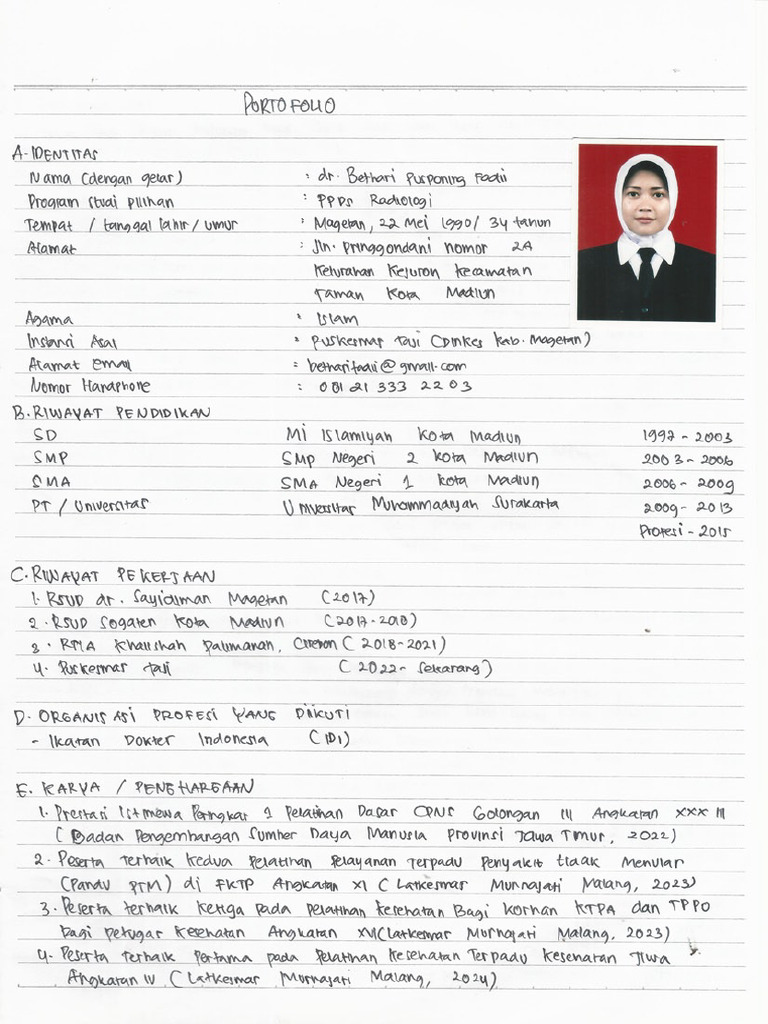 PORTOFOLIO
A. IDENTITAS
Nama (dengan gelar) : dr. Bethari Pusponing Fadii
Program studi pilihan : PPDS Radiologi
Tempat / tanggal lahir / umur : Magetan, 22 Mei 1990 / 34 tahun
Alamat : Jln. Pringgondani nomor 2A
Kelurahan Kejuron Kecamatan
Taman Kota Madiun
Agama : Islam
Instansi Asal : Puskesmas Taji (Dinkes Kab. Magetan)
Alamat email : betharifadii@gmail.com
Nomor Handphone : 081 21 333 2203
B. RIWAYAT PENDIDIKAN
SD MI Islamiyah Kota Madiun 1997 - 2003
SMP SMP Negeri 2 Kota Madiun 2003 - 2006
SMA SMA Negeri 1 Kota Madiun 2006 - 2009
PT / Universitas Universitas Muhammadiyah Surakarta 2009 - 2013
Profesi - 2015
C. RIWAYAT PEKERJAAN
1. RSUD dr. Sayidiman Magetan (2017)
2. RSUD Sogaten Kota Madiun (2017 - 2018)
3. RSIA Khalishah Palimanan, Cirebon ( 2018 - 2021)
4. Puskesmas Taji ( 2022 - Sekarang)
D. ORGANISASI PROFESI YANG DIIKUTI
- Ikatan Dokter Indonesia (IDI)
E. KARYA / PENGHARGAAN
1. Prestasi Istimewa Peringkat 1 Pelatihan Dasar CPNS Golongan III Angkatan XXX III
( Badan Pengembangan Sumber Daya Manusia Provinsi Jawa Timur, 2022)
2. Peserta Terbaik Kedua Pelatihan Pelayanan Terpadu Penyakit tidak Menular
(Pandu PTM) di FKTP Angkatan XI ( Latkesmas Murnajati Malang, 2023)
3. Peserta terbaik Ketiga pada Pelatihan Kesehatan Bagi Korban KTPA dan TPPO
bagi Petugas Kesehatan Angkatan XVI (Latkesmas Murnajati Malang, 2023)
4. Peserta Terbaik Pertama pada Pelatihan Kesehatan Terpadu Kesehatan Jiwa
Angkatan IV ( Latkesmas Murnajati Malang, 2024)